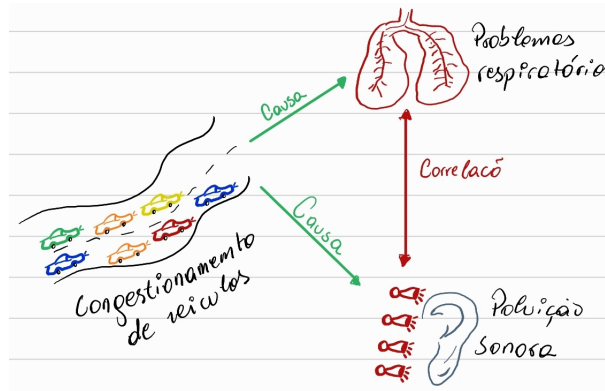 Problemas
respiratório
Causa
Correlacó
Causa
Congestionamento
de veiculos
Poluição
sonora